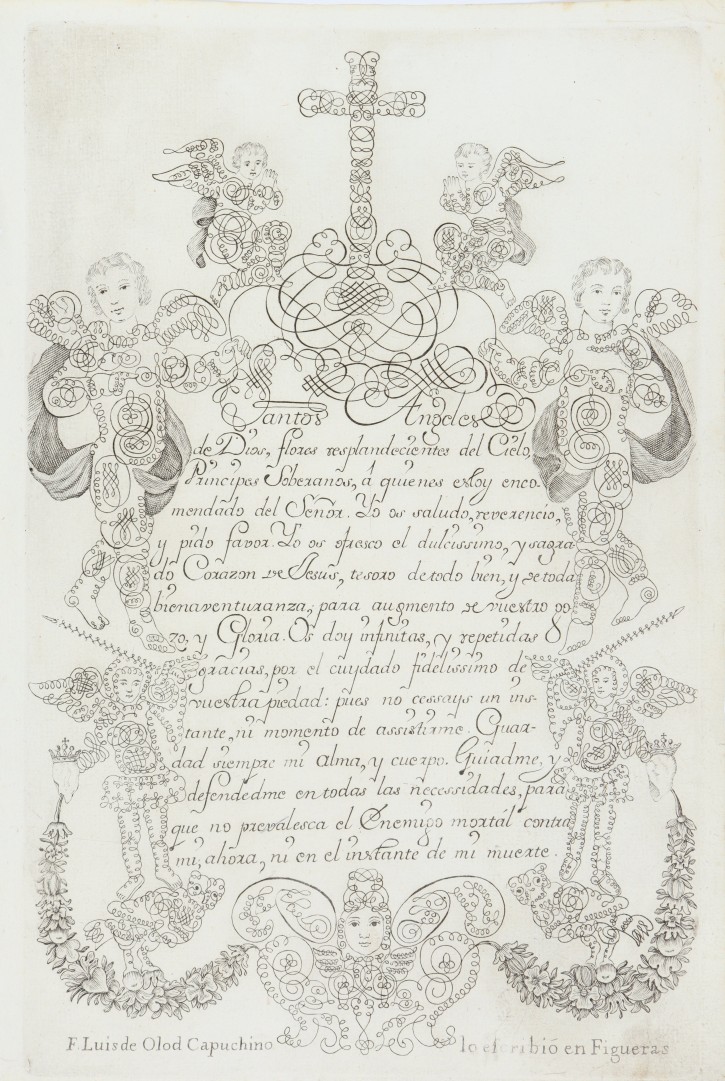 Santos Angeles
de Dios, flores resplandecientes del Cielo,
Principes Soberanos, á quienes estoy enco-
mendado del Señor. Yo os saludo, reverencio,
y pido favor. Yo os ofresco el dulcissimo, y sagra
do Corazon de Jesus, tesoro de todo bien, y de toda
bienaventuranza, para augmento de vuestro go
zo, y Gloria. Os doy infinitas, y repetidas
gracias, por el cuydado fidelissimo de
vuestra piedad: pues no cessays un ins-
tante, ni momento de assistirme. Guar-
dad siempre mi alma, y cuerpo. Guiadme, y
defendedme en todas las necessidades, para
que no prevalesca el Enemigo mortal contra
mi, ahora, ni en el instante de mi muerte.
F. Luis de Olod Capuchino lo escribió en Figueras